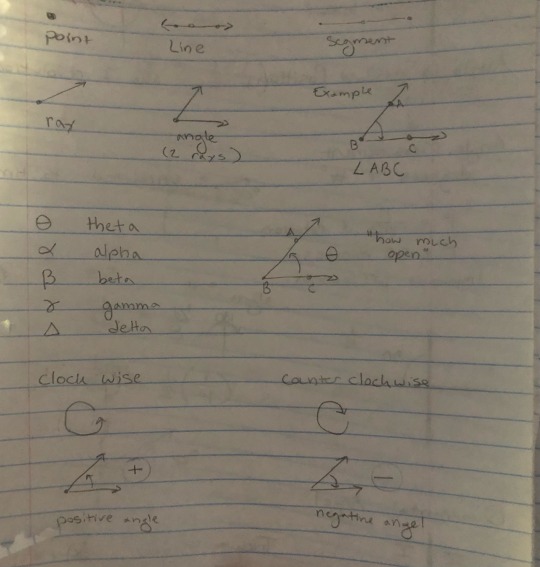 point Line segment
ray angle Example
(2 rays) A
B C
∠ABC
θ theta
α alpha
β beta
γ gamma
Δ delta
A θ "how much
open"
B C
clock wise counter clockwise
+ −
positive angle negative angel